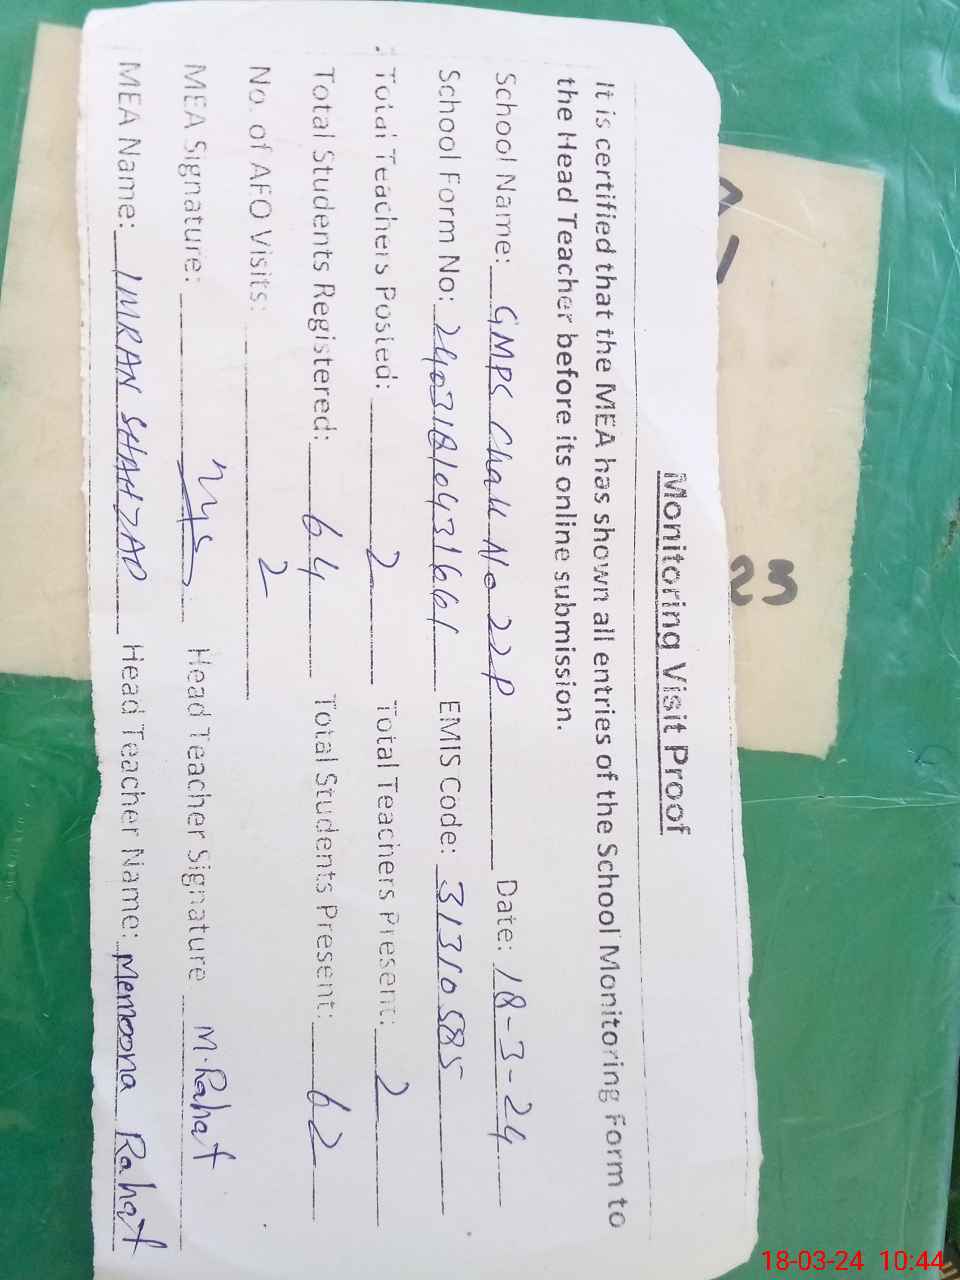 Monitoring Visit Proof
It is certified that the MEA has shown all entries of the School Monitoring Form to
the Head Teacher before its online submission.
School Name: GMPS Chak No 22P Date: 18-3-24
School Form No: 24031810431661 EMIS Code: 31310585
Total Teachers Posted: 2 Total Teachers Present: 2
Total Students Registered: 64 Total Students Present: 62
No. of AFO Visits: 2
MEA Signature: Head Teacher Signature M.Rahat
MEA Name: IMRAN SHAHZAD Head Teacher Name: Memoona Rahat
23
18-03-24 10:44